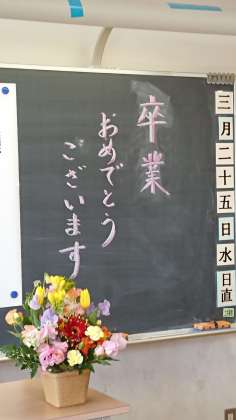 三月二十五日水日直
卒業
おめでとう
ございます